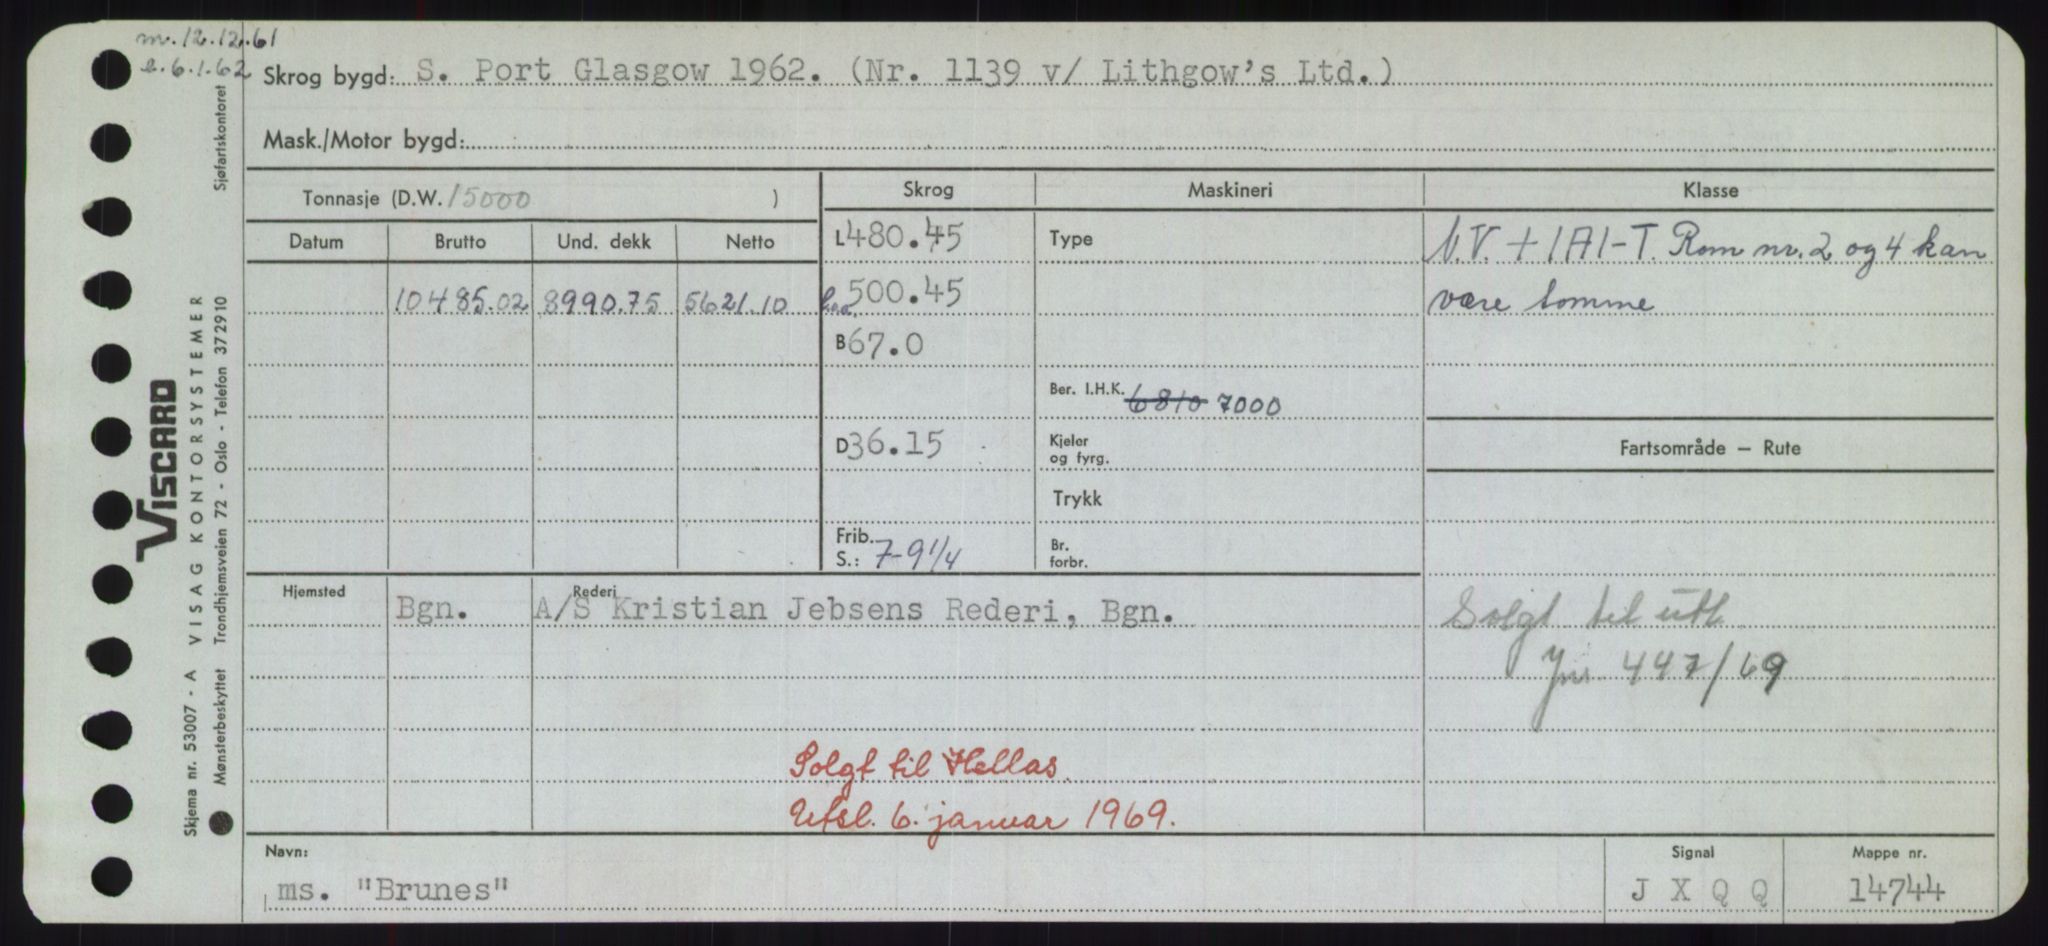 m. 12.12.61
b. 6.1.62
Skrog bygd: S. Port Glasgow 1962. (Nr. 1139 v/ Lithgow's Ltd.)
Mask./Motor bygd:
Tonnasje (D.W. 15000 )
Skrog
Maskineri
Klasse
Datum
Brutto
Und. dekk
Netto
10485.02
8990.75
5621.10
L 480.45
l.o.a. 500.45
B 67.0
D 36.15
Frib. S.: 7-9 1/4
Type
Ber. I.H.K. 6810 7000
Kjeler og fyrg.
Trykk
Br. forbr.
N.V. + 1A1-T. Rom nr. 2 og 4 kan
være tomme
Fartsområde — Rute
Solgt til utl.
Jnr. 447/69
Hjemsted
Bgn.
Rederi
A/S Kristian Jebsens Rederi, Bgn.
Solgt til Hellas.
Utsl. 6. januar 1969.
Navn:
ms. "Brunes"
Signal
J X Q Q
Mappe nr.
14744
VISCARD
Skjema nr. 53007 - A VISAG KONTORSYSTEMER
Mønsterbeskyttet Trondhjemsveien 72 - Oslo - Telefon 372910 Sjøfartskontoret